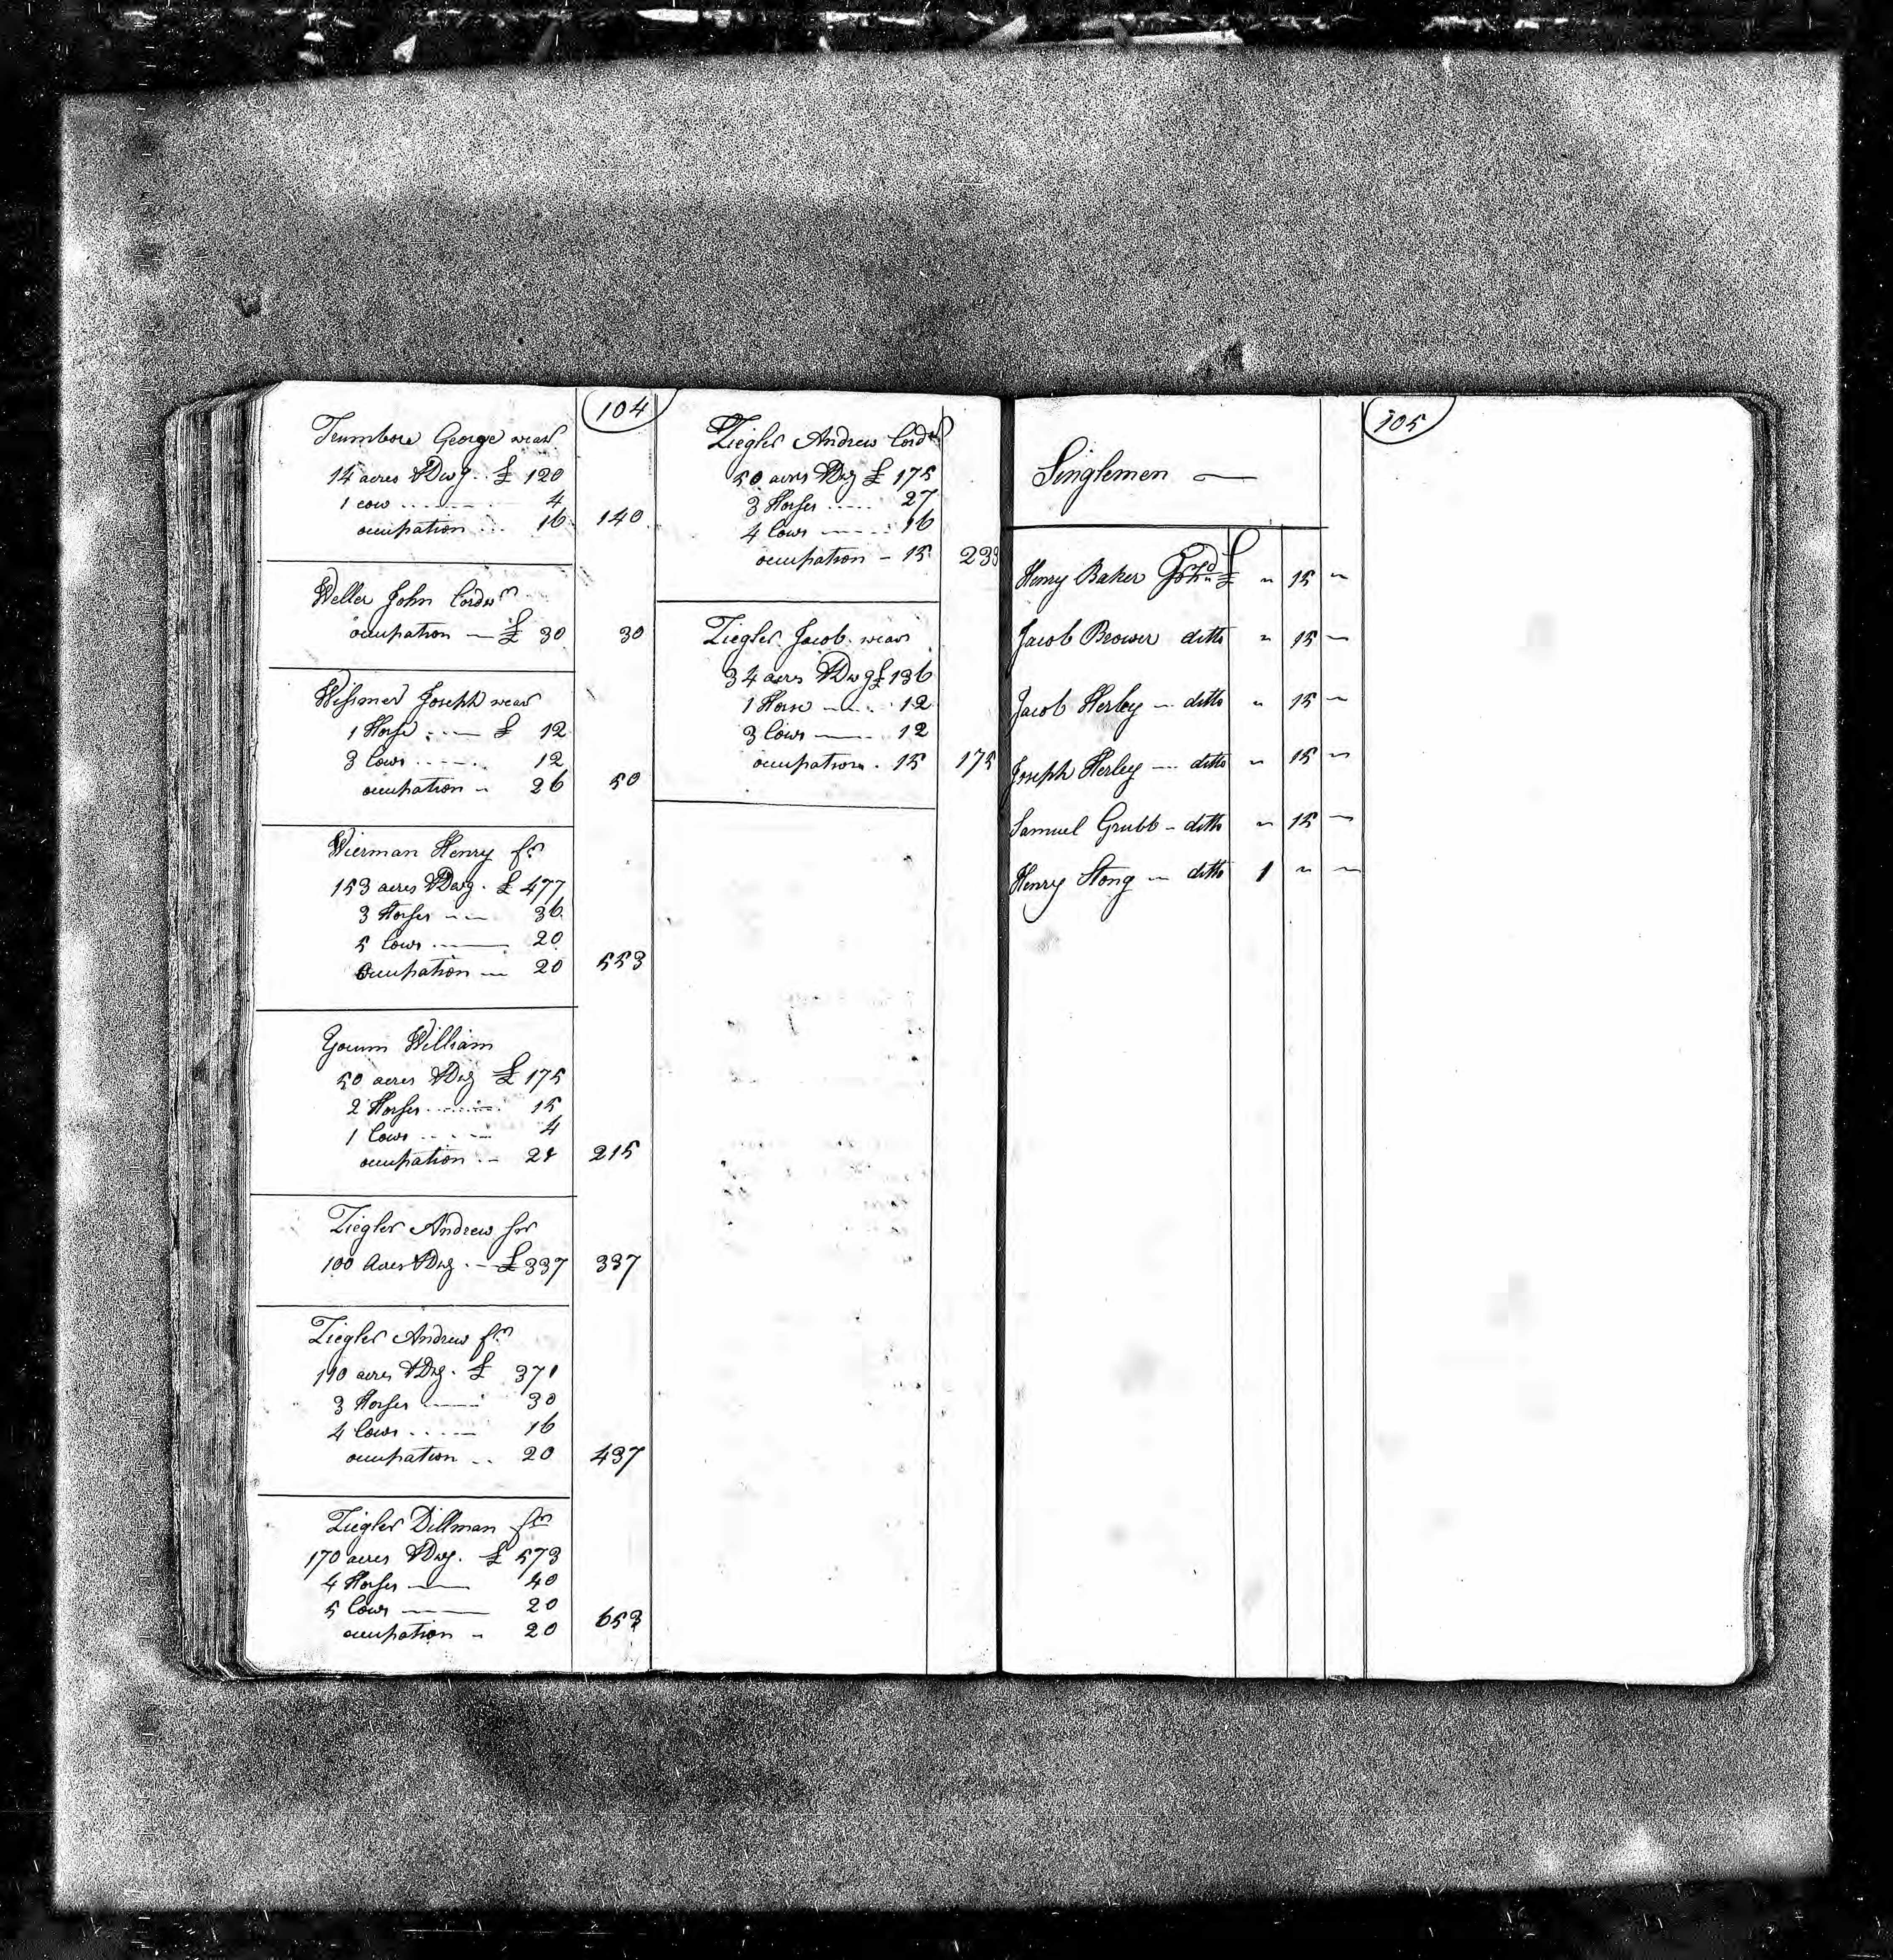 104
Trumbore George weavr
14 acres & Dwg .. £ 120
1 cow ........ 4
occupation ... 16 140
Weller John Cordwr
occupation — £ 30 30
Wissmer Joseph weavr
1 Horse . — £ 12
3 Cows ...... 12
occupation - 26 50
Wierman Henry fr
153 acres & Dwg . £ 477
3 Horses --- 36
5 Cows . —— 20
occupation — 20 553
Yocum William
50 acres & Dwg £ 175
2 Horses ...... 15
1 Cows .. -- 4
occupation . - 21 215
Ziegler Andrew senr
100 Acres & Dwg . - £ 337 337
Ziegler Andrew fr
110 acres & Dwg . £ 371
3 Horses —— 30
4 Cows ..... 16
occupation .. 20 437
Ziegler Dillman fr
170 acres & Dwg . £ 573
4 Horses —— 40
5 Cows —— 20
occupation - 20 653
Ziegler Andrew Cordwr
50 acres & Dwg £ 175
3 Horses ..... 27
4 Cows —... 16
occupation - 15 233
Ziegler Jacob weavr
34 acres & Dwg £ 136
1 Horse —... 12
3 Cows —— 12
occupation . 15 175
105
Singlemen —
Henry Baker £ " 15 "
Jacob Brower ditto " 15 —
Jacob Herley — ditto " 15 —
Joseph Herley — ditto " 15 "
Samuel Grubb - ditto " 15 —
Henry Stong — ditto 1 " —